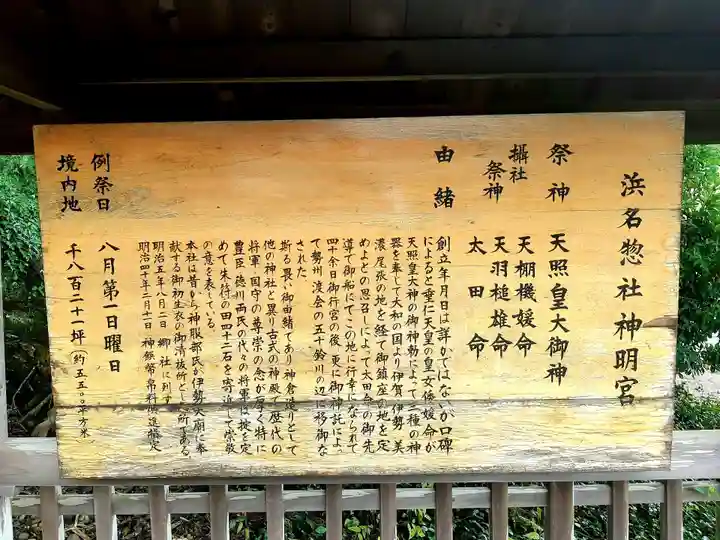 浜名惣社神明宮
祭神 天照皇大御神
天棚機媛命
攝社
祭神 天羽槌雄命
太田命
由緒
創立年月日は詳かではないが口碑
によると垂仁天皇の皇女倭媛命が
天照皇大神の御神勅によって三種の神
器を奉じて大和の国より伊賀伊勢美
濃尾張の地を経て御鎮座の地を定
めよとの思召しによって太田命の御先
導で御船にてこの地に行幸になられて
四十余日御行宮の後更に御神託によっ
て勢州渡会の五十鈴川の辺に移御な
された
斯る異い御由緒であり神倉造りとして
他の神社と異り古式の神殿で歴代の
将軍国守の尊崇の念が厚く特に
豊臣徳川両氏の代々の将軍は掟を定
めて朱符の田四十三石を寄進して崇敬
の意を表している
本社は昔から神服部氏が伊勢大廟に奉
献する御初生衣の御清祓所とした所である
明治五年八月二日 郷社に列す
明治四十年二月十一日 神饌幣帛料供進指定
例祭日 八月第一日曜日
境内地 千八百二十一坪(約五五〇〇平方米